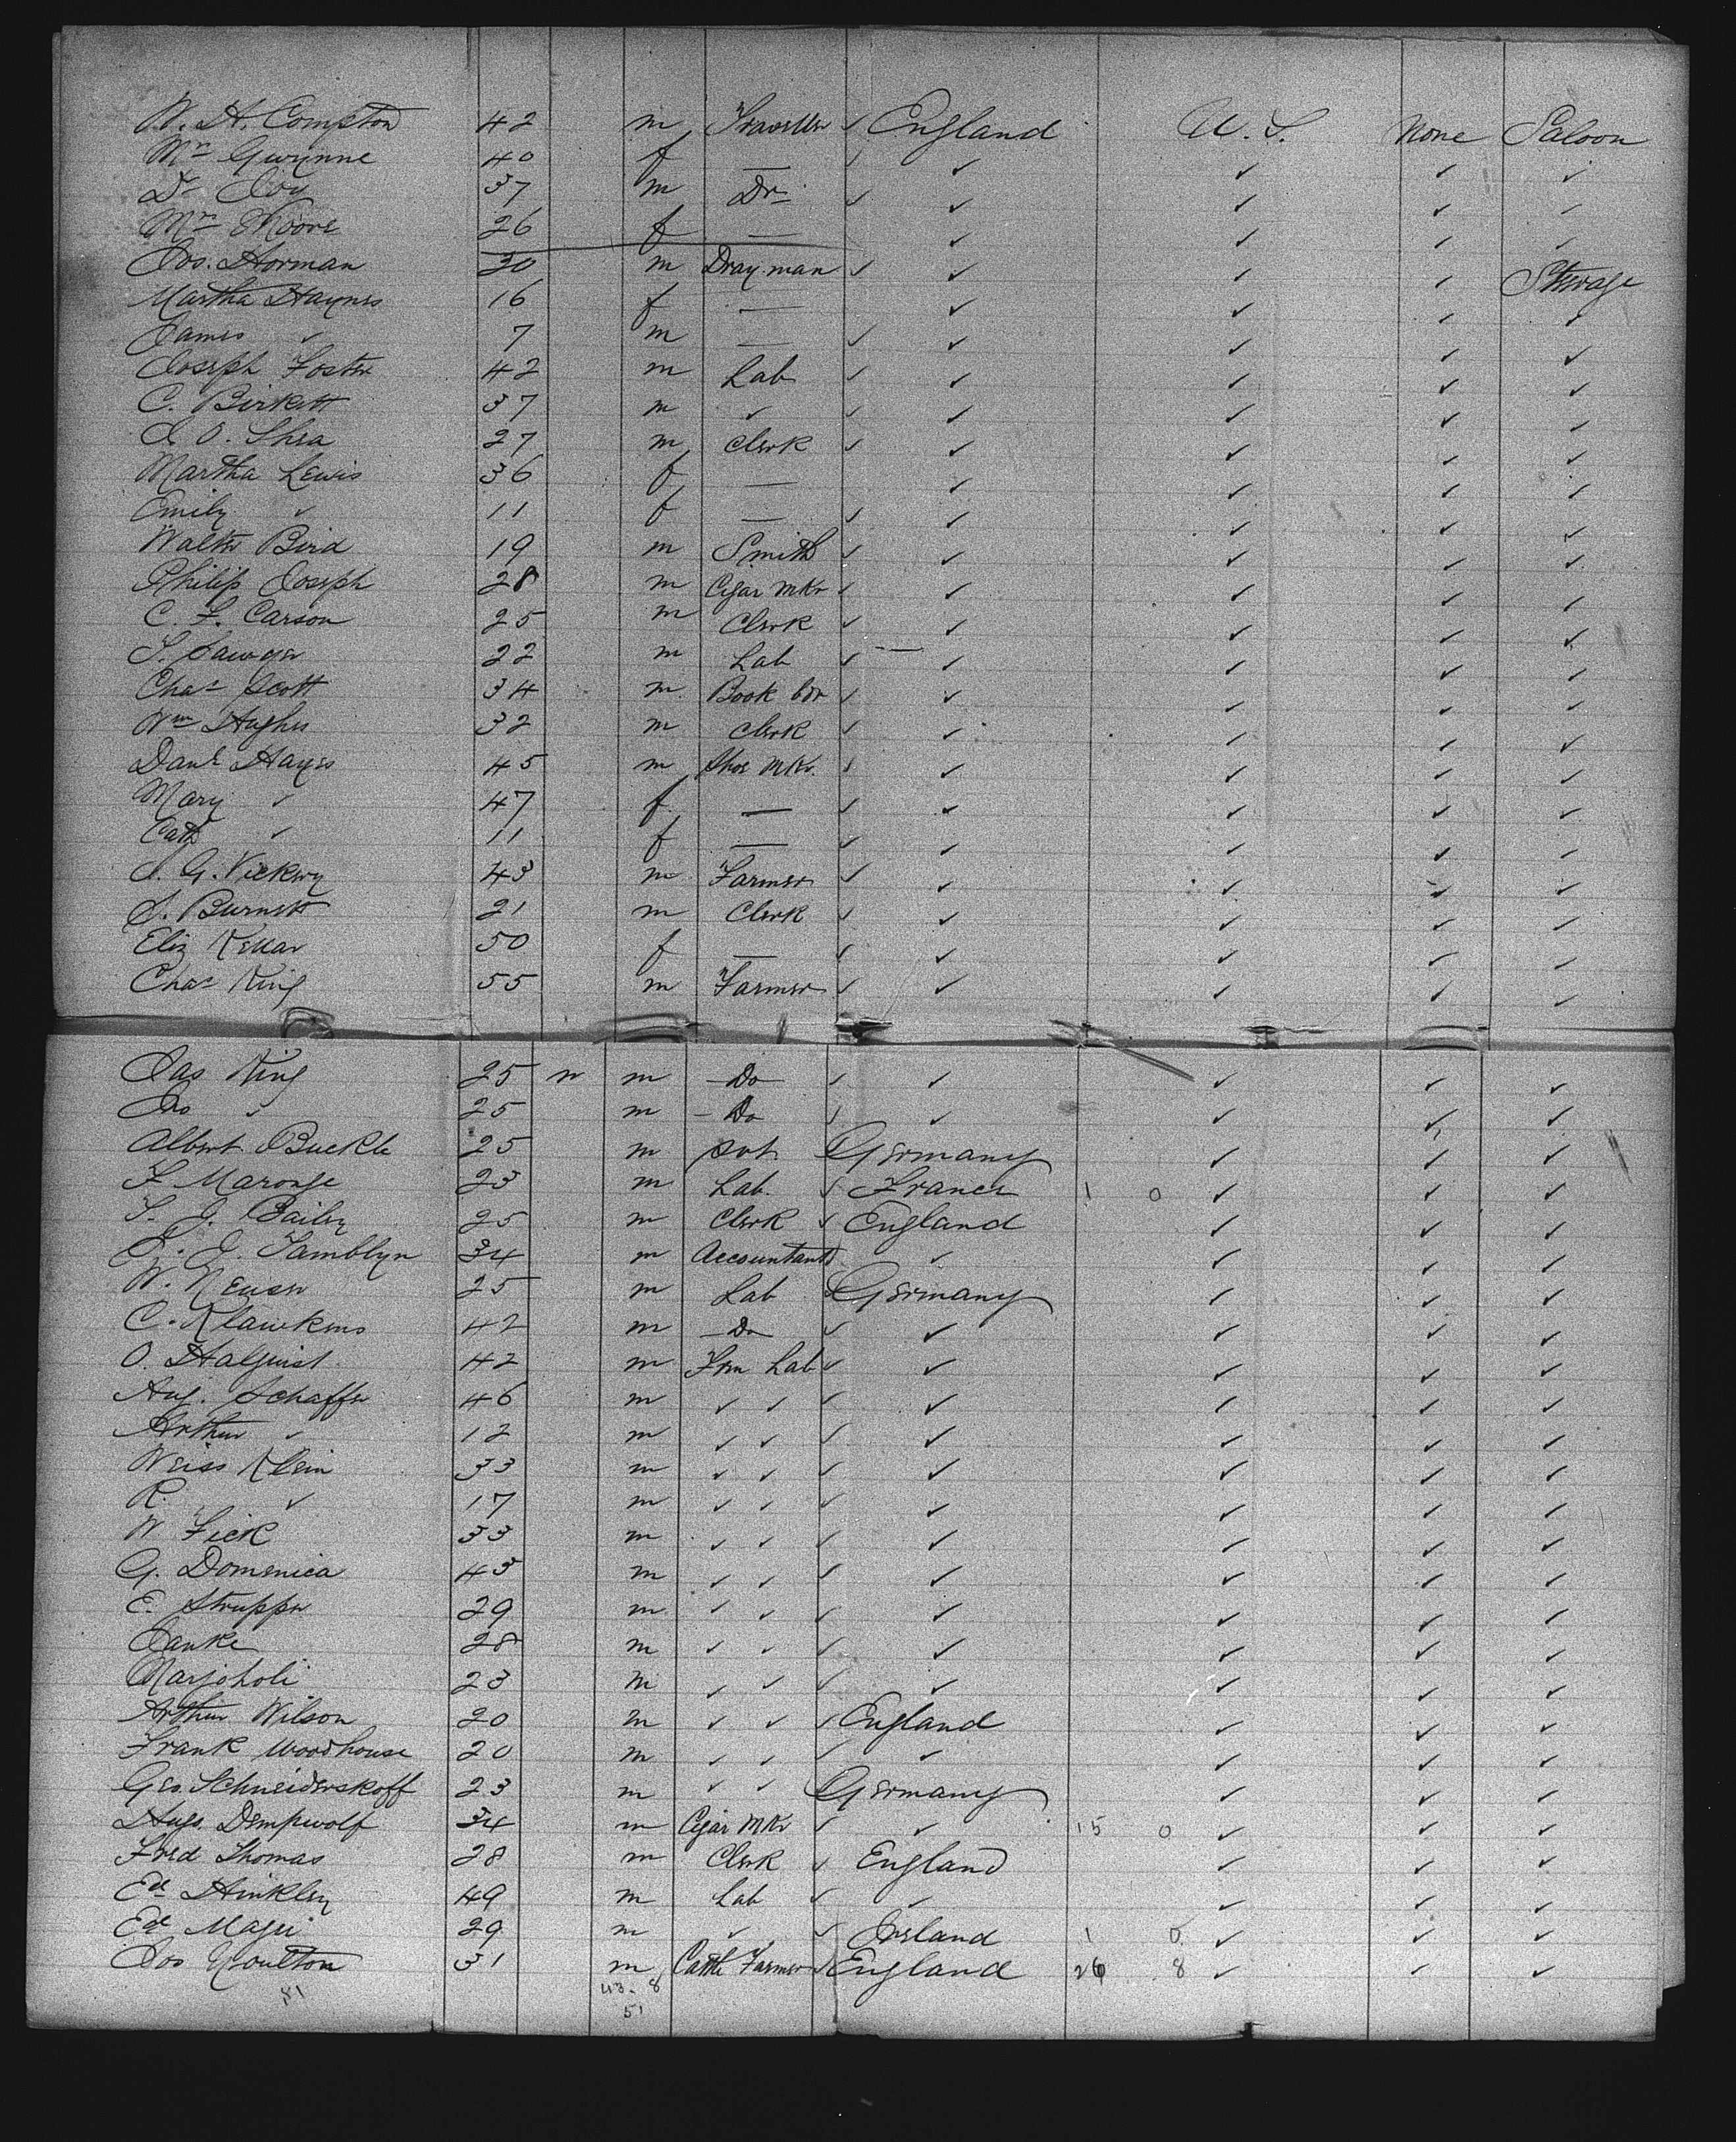 W. H. Compton 42 m Traveller ✓ England U. S. None Saloon
Mrs Gwynne 40 f — ✓ ✓ ✓ ✓ ✓
Dr Coy 37 m Dr ✓ ✓ ✓ ✓ ✓
Mrs Moore 26 f — ✓ ✓ ✓ ✓
Jos. Horman 30 m Drayman ✓ ✓ ✓ ✓ Steerage
Martha Haynes 16 f — ✓ ✓ ✓ ✓
James ✓ 7 m — ✓ ✓ ✓ ✓ ✓
Joseph Foster 42 m Lab ✓ ✓ ✓ ✓ ✓
C. Birkett 37 m ✓ ✓ ✓ ✓ ✓ ✓
J O. Shea 27 m Clerk ✓ ✓ ✓ ✓ ✓
Martha Lewis 36 f — ✓ ✓ ✓ ✓
Emily ✓ 11 f — ✓ ✓ ✓ ✓ ✓
Walter Bird 19 m Smith ✓ ✓ ✓ ✓ ✓
Philip Joseph 28 m Cigar Mkr ✓ ✓ ✓ ✓ ✓
C. F. Carson 25 m Clerk ✓ ✓ ✓ ✓ ✓
S. Sawyer 22 m Lab ✓ ✓ ✓ ✓ ✓
Chas Scott 34 m Book bdr ✓ ✓ ✓ ✓ ✓
Wm Hughes 32 m Clerk ✓ ✓ ✓ ✓ ✓
Danl Hayes 45 m Shoe Mkr. ✓ ✓ ✓ ✓ ✓
Mary ✓ 47 f — ✓ ✓ ✓ ✓ ✓
Cath ✓ 11 f — ✓ ✓ ✓ ✓ ✓
J. G. Vickery 43 m Farmer ✓ ✓ ✓ ✓ ✓
S. Burnett 21 m Clerk ✓ ✓ ✓ ✓ ✓
Eliz Kellar 50 f — ✓ ✓ ✓ ✓ ✓
Chas King 55 m Farmer ✓ ✓ ✓ ✓ ✓
Jas King 25 m Do ✓ ✓ ✓ ✓ ✓
Jno ✓ 25 m Do ✓ ✓ ✓ ✓ ✓
Albert Buckle 25 m Germany ✓ ✓ ✓
F Maronge 23 m Lab. ✓ France 1 0 ✓ ✓ ✓
S. J. Bailey 25 m Clerk ✓ England ✓ ✓ ✓
S. J. Tamblyn 34 m Accountant ✓ ✓ ✓ ✓
W. Neuser 25 m Lab Germany ✓ ✓ ✓
C. Klawkens 42 m Do ✓ ✓ ✓ ✓ ✓
O. Halquist 42 m Frm Lab ✓ ✓ ✓ ✓ ✓
Aug. Schaffer 46 m ✓ ✓ ✓ ✓ ✓ ✓ ✓
Arthur ✓ 12 m ✓ ✓ ✓ ✓ ✓ ✓ ✓
Weiss Klein 33 m ✓ ✓ ✓ ✓ ✓ ✓ ✓
R. ✓ 17 m ✓ ✓ ✓ ✓ ✓ ✓ ✓
W Fick 33 m ✓ ✓ ✓ ✓ ✓ ✓ ✓
G. Domenica 43 m ✓ ✓ ✓ ✓ ✓ ✓ ✓
E. Strupper 29 m ✓ ✓ ✓ ✓ ✓ ✓ ✓
Janke 28 m ✓ ✓ ✓ ✓ ✓ ✓ ✓
Marjoholi 23 m ✓ ✓ ✓ ✓ ✓ ✓ ✓
Arthur Wilson 20 m ✓ ✓ ✓ England ✓ ✓ ✓
Frank Woodhouse 20 m ✓ ✓ ✓ ✓ ✓ ✓ ✓
Geo. Schneiderskoff 23 m ✓ ✓ Germany ✓ ✓ ✓
Hugo Dempwolf 34 m Cigar Mkr ✓ ✓ 15 0 ✓ ✓ ✓
Fred Thomas 28 m Clerk ✓ England ✓ ✓ ✓
Ed Hinkley 49 m Lab ✓ ✓ ✓ ✓ ✓
Ed Magee 29 m ✓ ✓ Ireland 1 0 ✓ ✓ ✓
Jos Moulton 31 m Cattle Farmer ✓ England 26 8 ✓ ✓ ✓
43 - 8
51